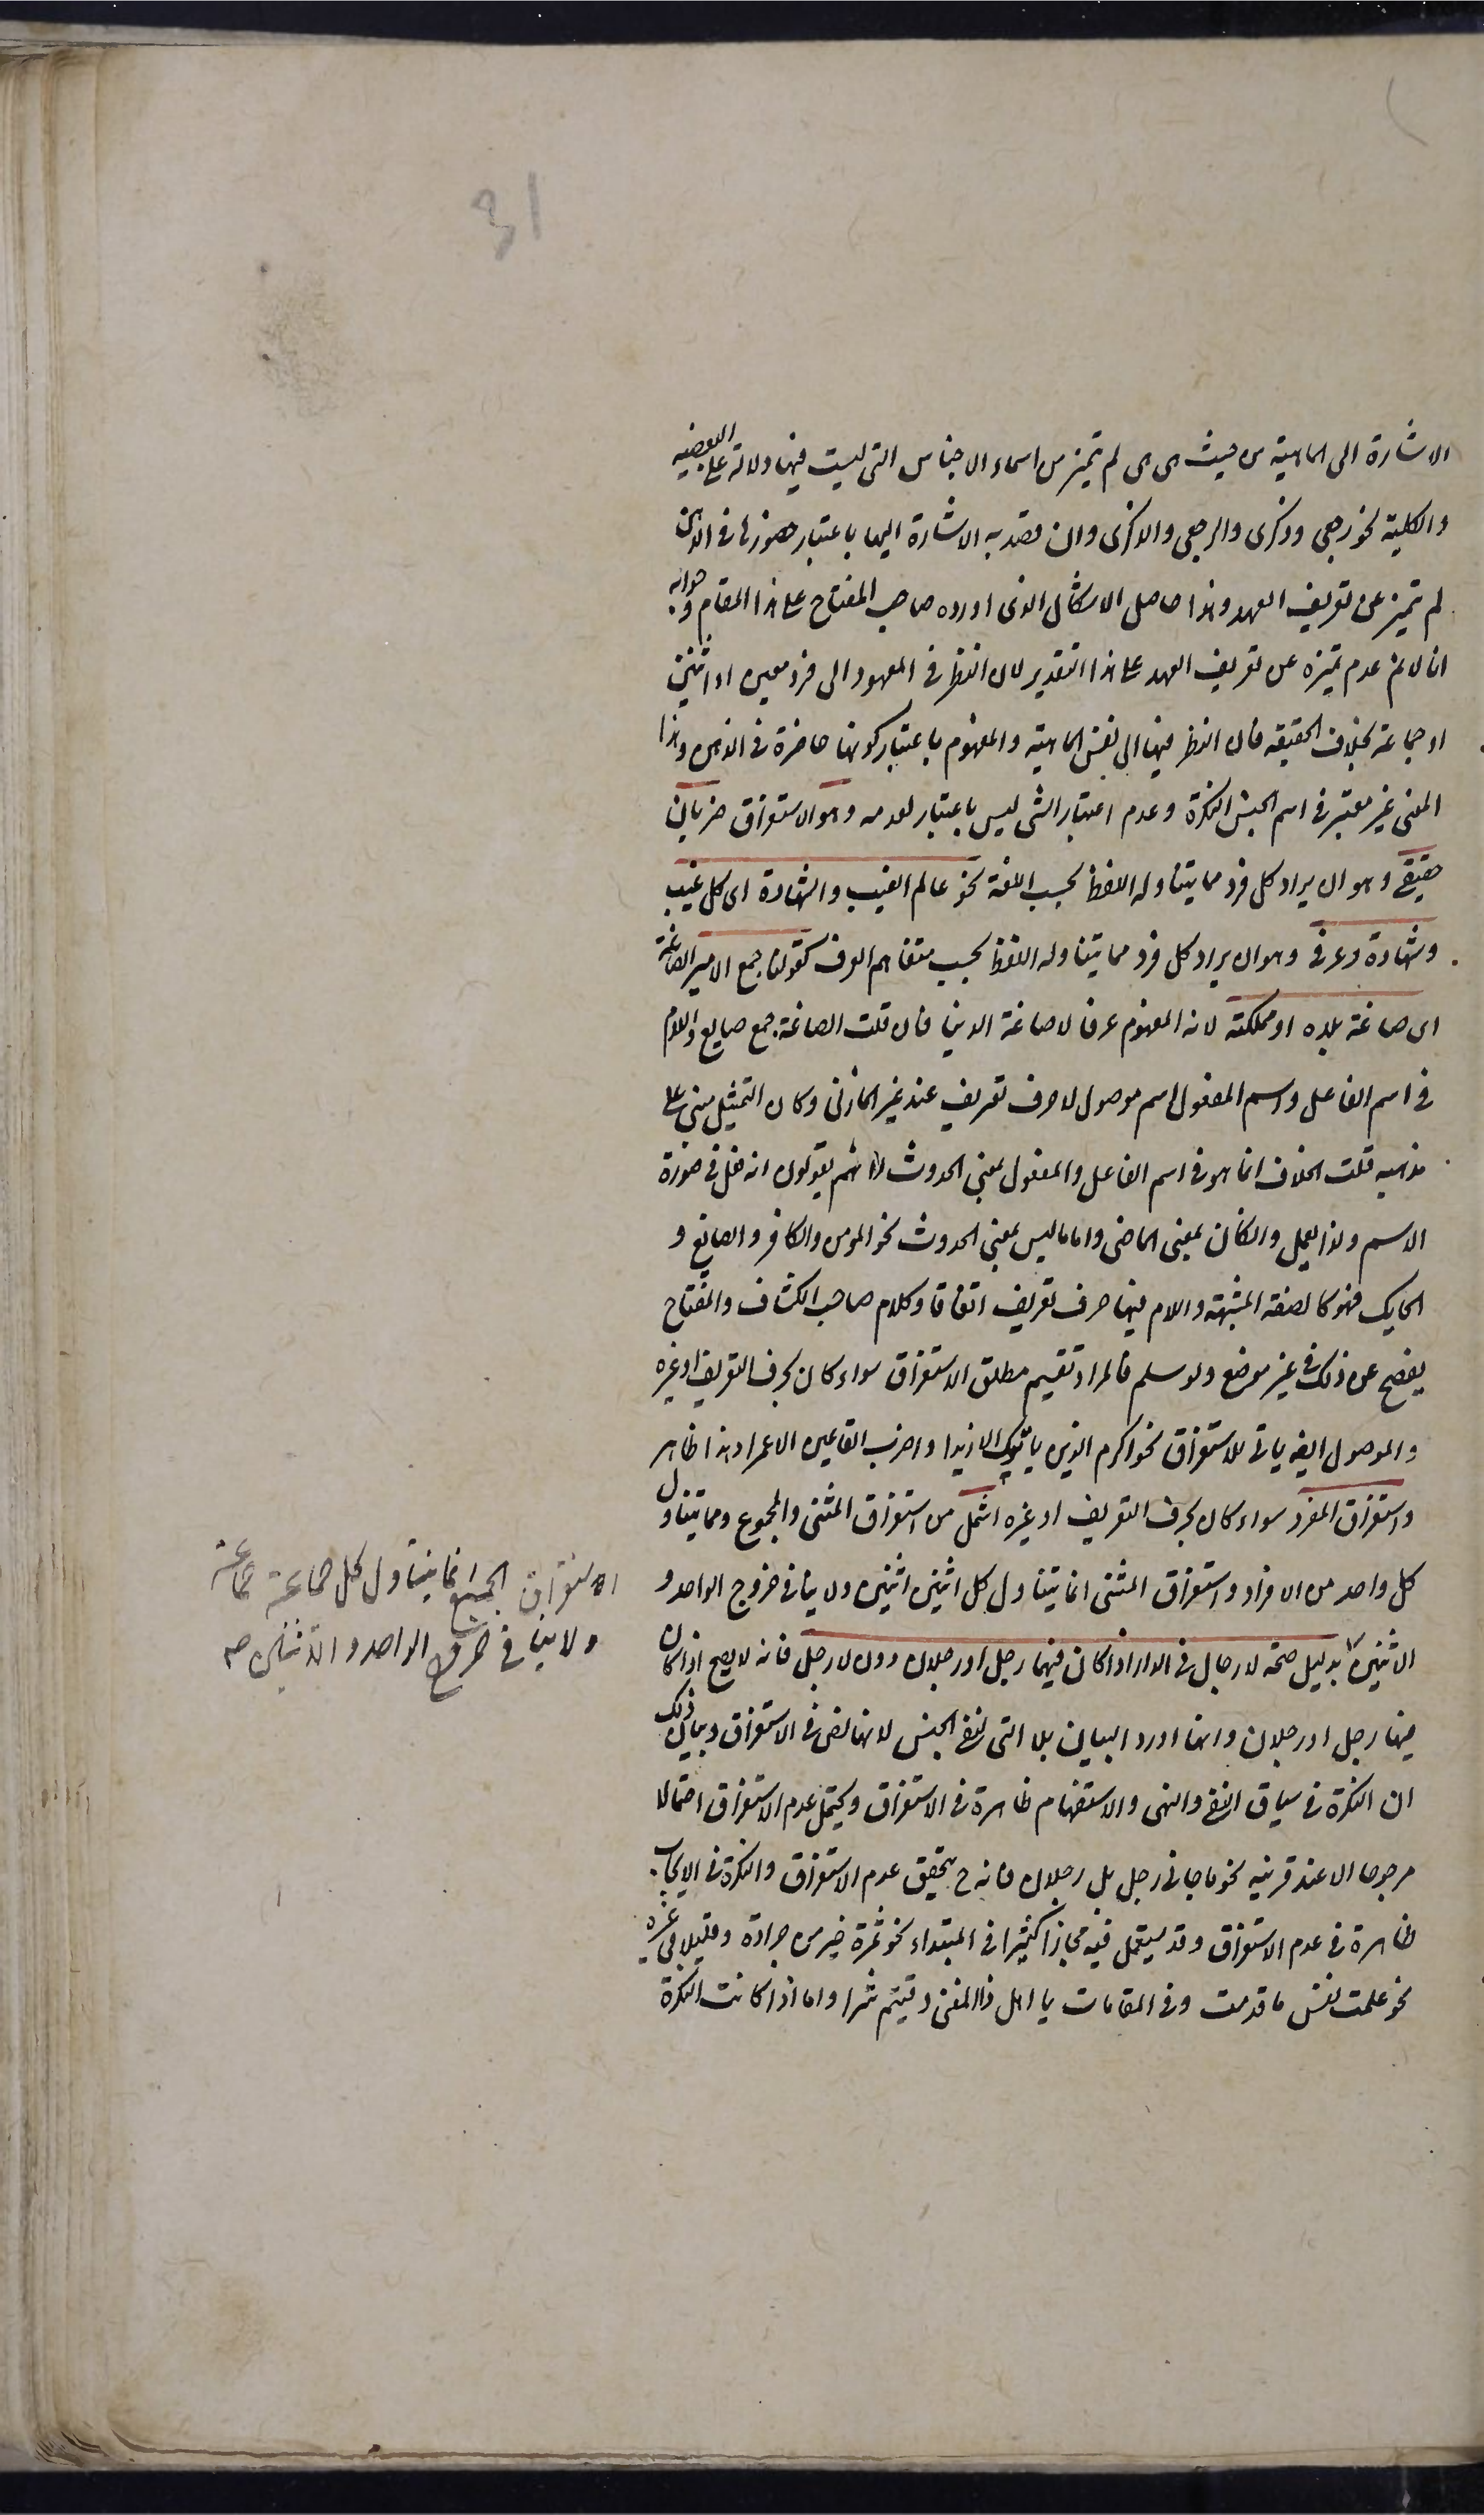 31
الاشارة الى الماهية من حيث هى هى لم تميز من اسماء الاجناس التى ليست فيها دلالة على البعضيه
والكلية نحو رجعى وذكرى والرجعى والذكرى وان قصد به الاشارة اليها باعتبار حضورها فى الذهن
لم تميز عن تعريف العهد وهذا حاصل الاشكال الذى اورده صاحب المفتاح على هذا المقام وجوابه
انا لانم عدم تميزه عن تعريف العهد على هذا التقدير لان النظر فى المعهود الى فرد معين او اثنين
او جماعة بخلاف الحقيقه فان النظر فيها الى نفس الماهية والمفهوم باعتبار كونها حاضرة فى الذهن وهذا
المعنى غير معتبر فى اسم الجنس النكرة وعدم اعتبار الشى ليس باعتبار لعدمه وهو الاستغراق ضربان
حقيقى وهو ان يراد كل فرد مما يتناوله اللفظ بحسب اللغة نحو عالم الغيب والشهادة اى كل غيب
وشهادة وعرفى وهو ان يراد كل فرد مما يتناوله اللفظ بحسب متفاهم العرف كقولنا جمع الامير الصاغة
اى صاغة بلده او مملكته لانه المفهوم عرفا لا صاغة الدنيا فان قلت الصاغة جمع صايغ واللام
فى اسم الفاعل واسم المفعول اسم موصول لا حرف تعريف عند غير المازنى وكان التمثيل مبنى على
مذهبه قلت الخلاف انما هو فى اسم الفاعل والمفعول بمعنى الحدوث لانهم يقولون انه فعل فى صورة
الاسم ولذا يعمل وان كان بمعنى الماضى واما ما ليس بمعنى الحدوث نحو المومن والكافر والصايغ و
الحايك فهو كالصفة المشبهة واللام فيها حرف تعريف اتفاقا وكلام صاحب الكشاف والمفتاح
يفصح عن ذلك فى غير موضع ولو سلم فالمراد تقسيم مطلق الاستغراق سواء كان بحرف التعريف او غيره
والموصول ايضه ياتى للاستغراق نحو اكرم الذين ياتونك الا زيدا واضرب القاعمين الا عمرا وهذا ظاهر
واستغراق المفرد سواء كان بحرف التعريف او غيره اشمل من استغراق المثنى والمجموع ومما يتناول
كل واحد من الافراد واستغراق المثنى انما يتناول كل اثنين اثنين ولا ينافى خروج الواحد و
الاثنين بدليل صحة لا رجال فى الدار اذا كان فيها رجل او رجلان دون لا رجل فانه لا يصح اذا كان
فيها رجل او رجلان وانما اورد البيان بلا التى لنفى الجنس لانها نص فى الاستغراق وبيان ذلك
ان النكرة فى سياق النفى والنهى والاستفهام ظاهرة فى الاستغراق ويحتمل عدم الاستغراق احتمالا
مرجوحا الا عند قرينه نحو ما جانى رجل بل رجلان فانه ح يتحقق عدم الاستغراق والنكرة فى الايجاب
ظاهرة فى عدم الاستغراق وقد يستعمل فيه مجازا كثيرا فى المبتداء نحو ثمرة خير من جرادة وقليلا فى غيره
نحو علمت نفس ما قدمت وفى المقامات يا اهل ذا المغنى وقيتم شرا واما اذا كانت النكرة
الاستغراق الجمع انما يتناول كل جماعة جماعة
ولا ينافى خروج الواحد والاثنين صح